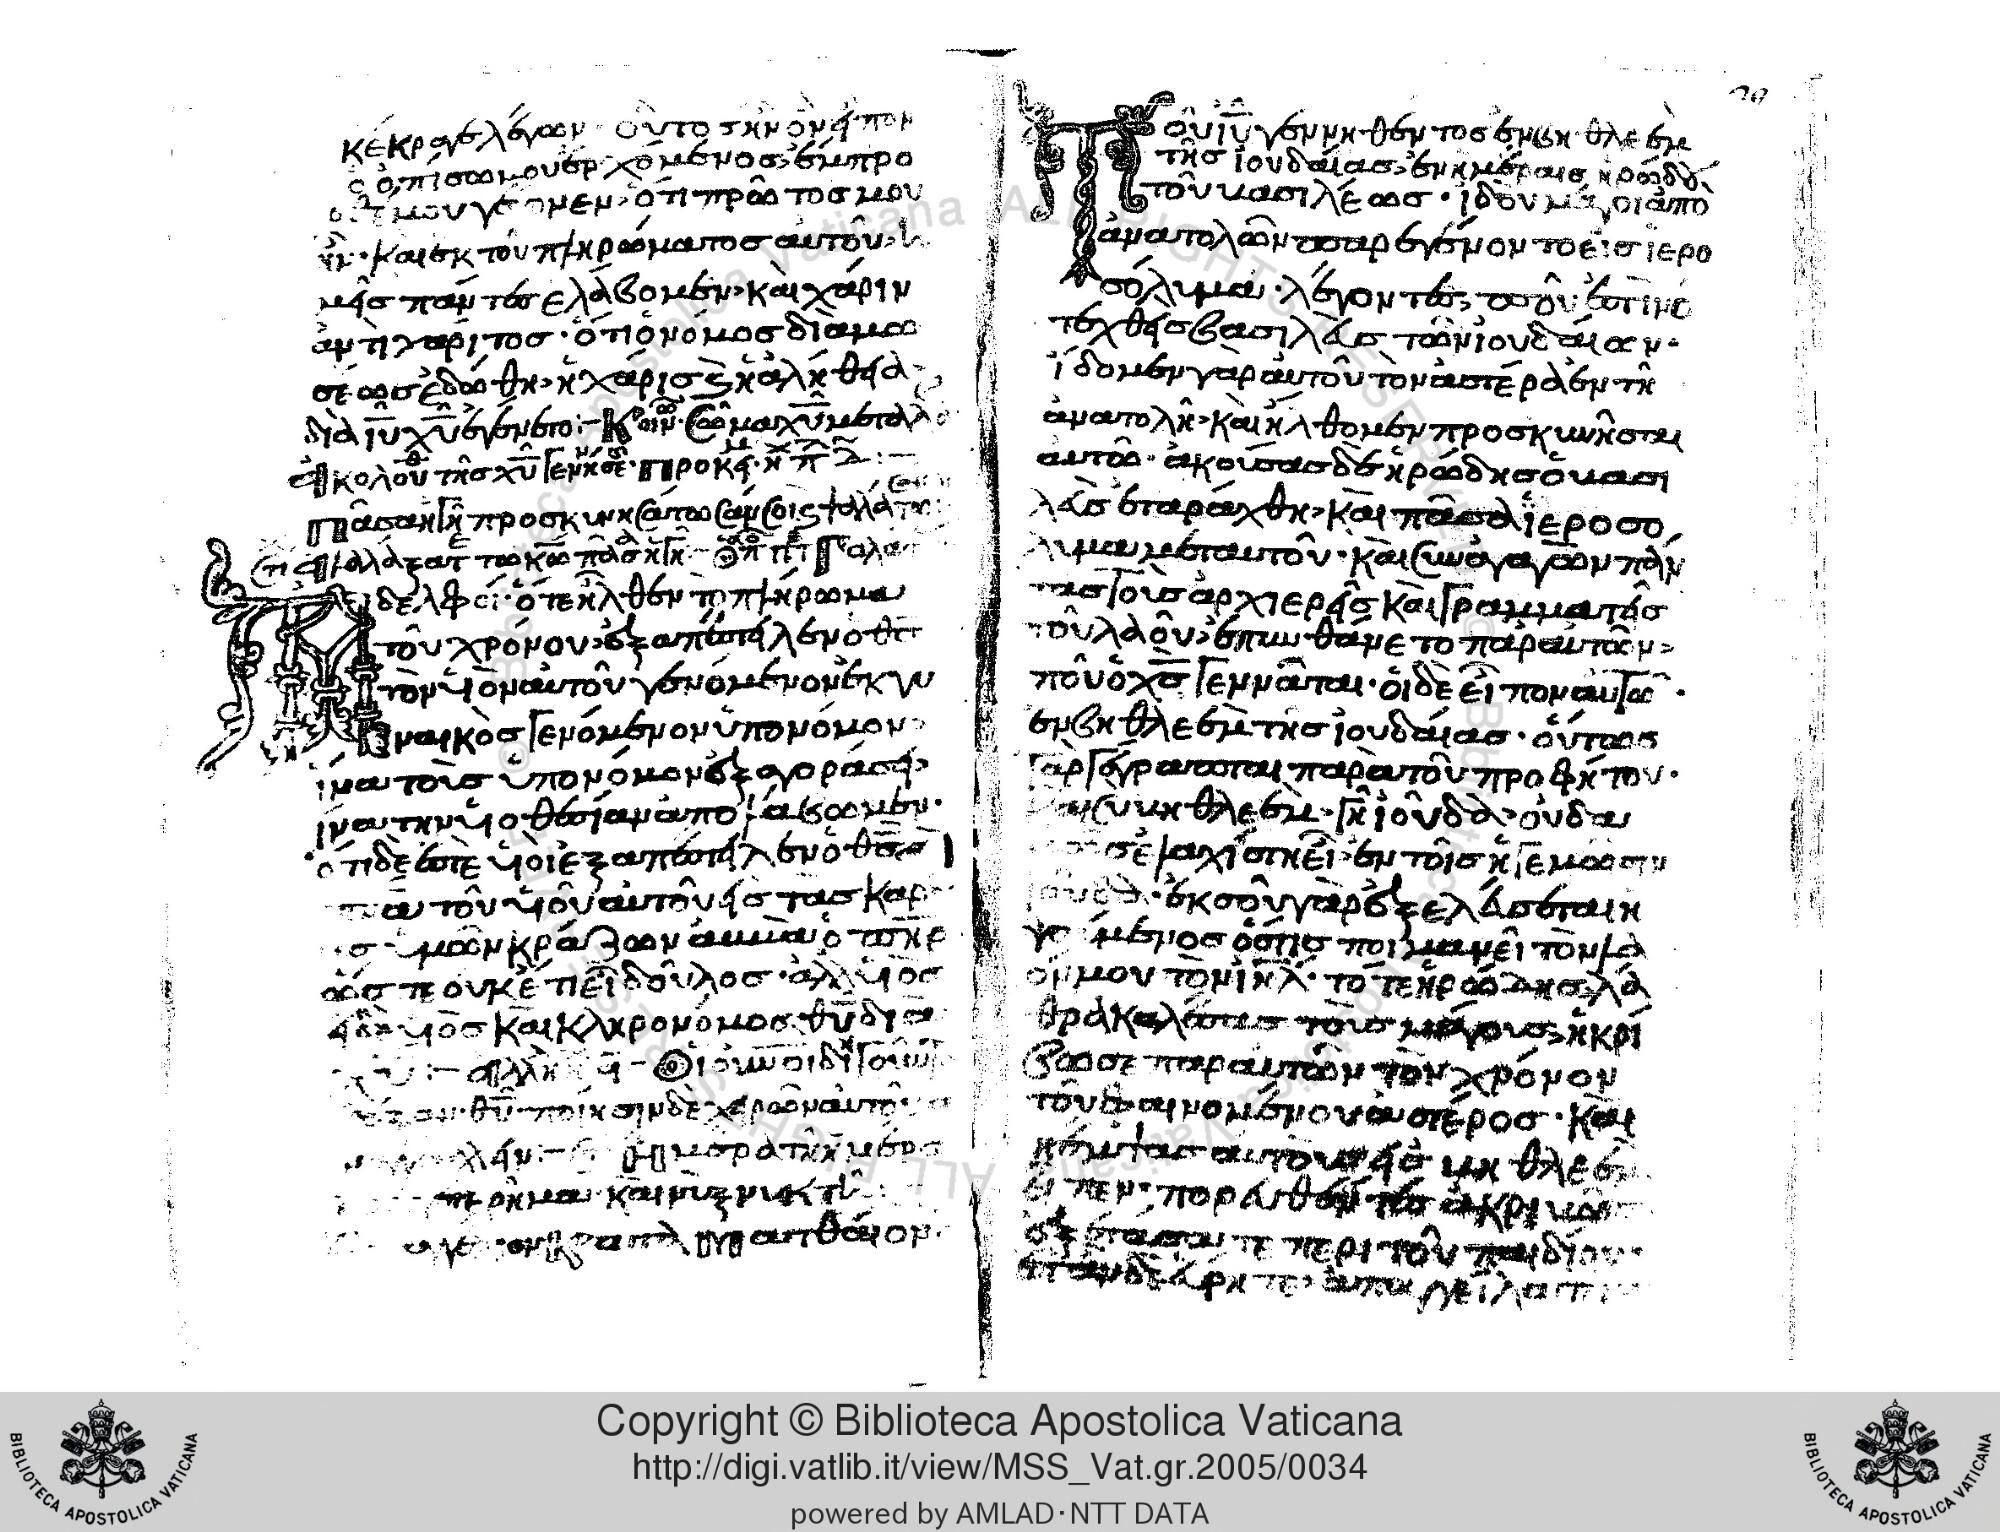 κέκραγε λέγων· οὗτος ἦν ὃν εἶπον
ὀπίσω μου ἐρχόμενος, ἔμπρο
μου γέγονεν, ὅτι πρῶτός μου
ἦν· καὶ ἐκ τοῦ πληρώματος αὐτοῦ ἡ
μεῖς πάντες ἐλάβομεν, καὶ χάριν
ἀντὶ χάριτος· ὅτι ὁ νόμος διὰ μω
σέως ἐδόθη, ἡ χάρις καὶ ἡ ἀλήθεια
διὰ ιυ χυ ἐγένετο:
πᾶσα ἡ γῆ προσκυνησάτωσάν σοι
δελφοί· ὅτε ἦλθεν τὸ πλήρωμα
τοῦ χρόνου, ἐξαπέστειλεν ὁ θς
τὸν υἱὸν αὐτοῦ γενόμενον ἐκ γυ
ναικὸς γενόμενον ὑπὸ νόμον,
ἵνα τοὺς ὑπὸ νόμον ἐξαγοράσει,
ἵνα τὴν υἱοθεσίαν ἀπολάβωμεν·
ὅτι δέ ἐστε υἱοί ἐξαπέστειλεν ὁ θς
τοῦ υἱοῦ αὐτοῦ εἰς τὰς καρ
ὑμῶν κράζων ἀββᾶ ὁ πηρ
ὥστε οὐκέτι εἶ δοῦλος· ἀλλ υἱὸς
εἰ δὲ υἱὸς καὶ κληρονόμος θυ διὰ
θυ· ποίησιν δὲ χειρῶν αὐτοῦ
ἡμέρα τῇ ἡμέρα
ῥῆμα· καὶ νὺξ νυκτὶ
29
Τοῦ ιυ γεννηθέντος ἐν βηθλεὲμ
τῆς ἰουδαίας, ἐν ἡμέραις ἡρώδου
τοῦ βασιλέως· ἰδοὺ μάγοι ἀπὸ
ἀνατολῶν παρεγένοντο εἰς ἱερο
σόλυμα· λέγοντες, ποῦ ἐστὶν ὁ
τεχθεὶς βασιλεὺς τῶν ἰουδαίων·
ἴδομεν γὰρ αὐτοῦ τὸν ἀστέρα ἐν τῇ
ἀνατολῇ, καὶ ἤλθομεν προσκυνῆσαι
αὐτῶ· ἀκούσας δὲ ἡρώδης ὁ βασι
λεὺς ἐταράχθη, καὶ πᾶσα ἱεροσό
λυμα μετ αὐτοῦ· καὶ συναγαγὼν πάν
τας τοὺς ἀρχιερεῖς καὶ γραμματεῖς
τοῦ λαοῦ, ἐπυνθάνετο παρ αὐτῶν,
ποῦ ὁ χς γεννᾶται· οἱ δὲ εἶπον αὐτῶ·
ἐν βηθλεὲμ τῆς ἰουδαίας· οὕτως
γὰρ γέγραπται παρὰ τοῦ προφήτου·
καὶ σὺ βηθλεὲμ, γῆ ἰούδα, οὐδα
μῶς ἐλαχίστη εἶ, ἐν τοῖς ἡγεμόσιν
ἰούδα· ἐκ σοῦ γὰρ ἐξελεύσεται ἡ
γούμενος ὅστις ποιμανεῖ τὸν λα
όν μου τὸν ιηλ· τότε ἡρώδης λά
θρα καλέσας τοὺς μάγους, ἠκρί
βωσε παρ αὐτῶν τὸν χρόνον
τοῦ φαινομένου ἀστέρος· καὶ
πέμψας αὐτοὺς εἰς βηθλεὲμ
εἶπεν· πορευθέντες ἀκριβῶς
ἐξετάσατε περὶ τοῦ παιδίου·
ἐπὰν δὲ εὕρητε, ἀπαγγείλατε
Copyright © Biblioteca Apostolica Vaticana
http://digi.vatlib.it/view/MSS_Vat.gr.2005/0034
powered by AMLAD·NTT DATA
BIBLIOTECA APOSTOLICA VATICANA
BIBLIOTECA APOSTOLICA VATICANA